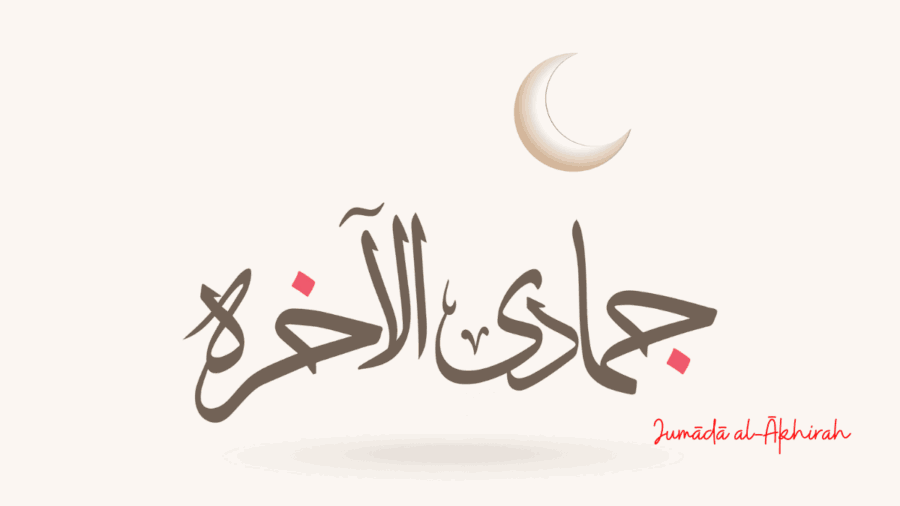 جمادى الآخره
Jumādā al-Ākhirah